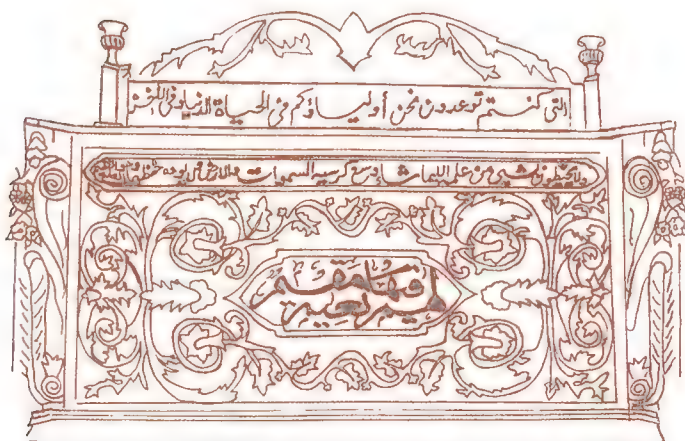 التى كنتم توعدون نحن أولياؤكم فى الحياة الدنيا وفى الآخرة
ولا يحيطون بشىء من علمه إلا بما شاء وسع كرسيه السموات والأرض ولا يوده حفظهما وهو العلى العظيم
لهم فيها نعيم مقيم